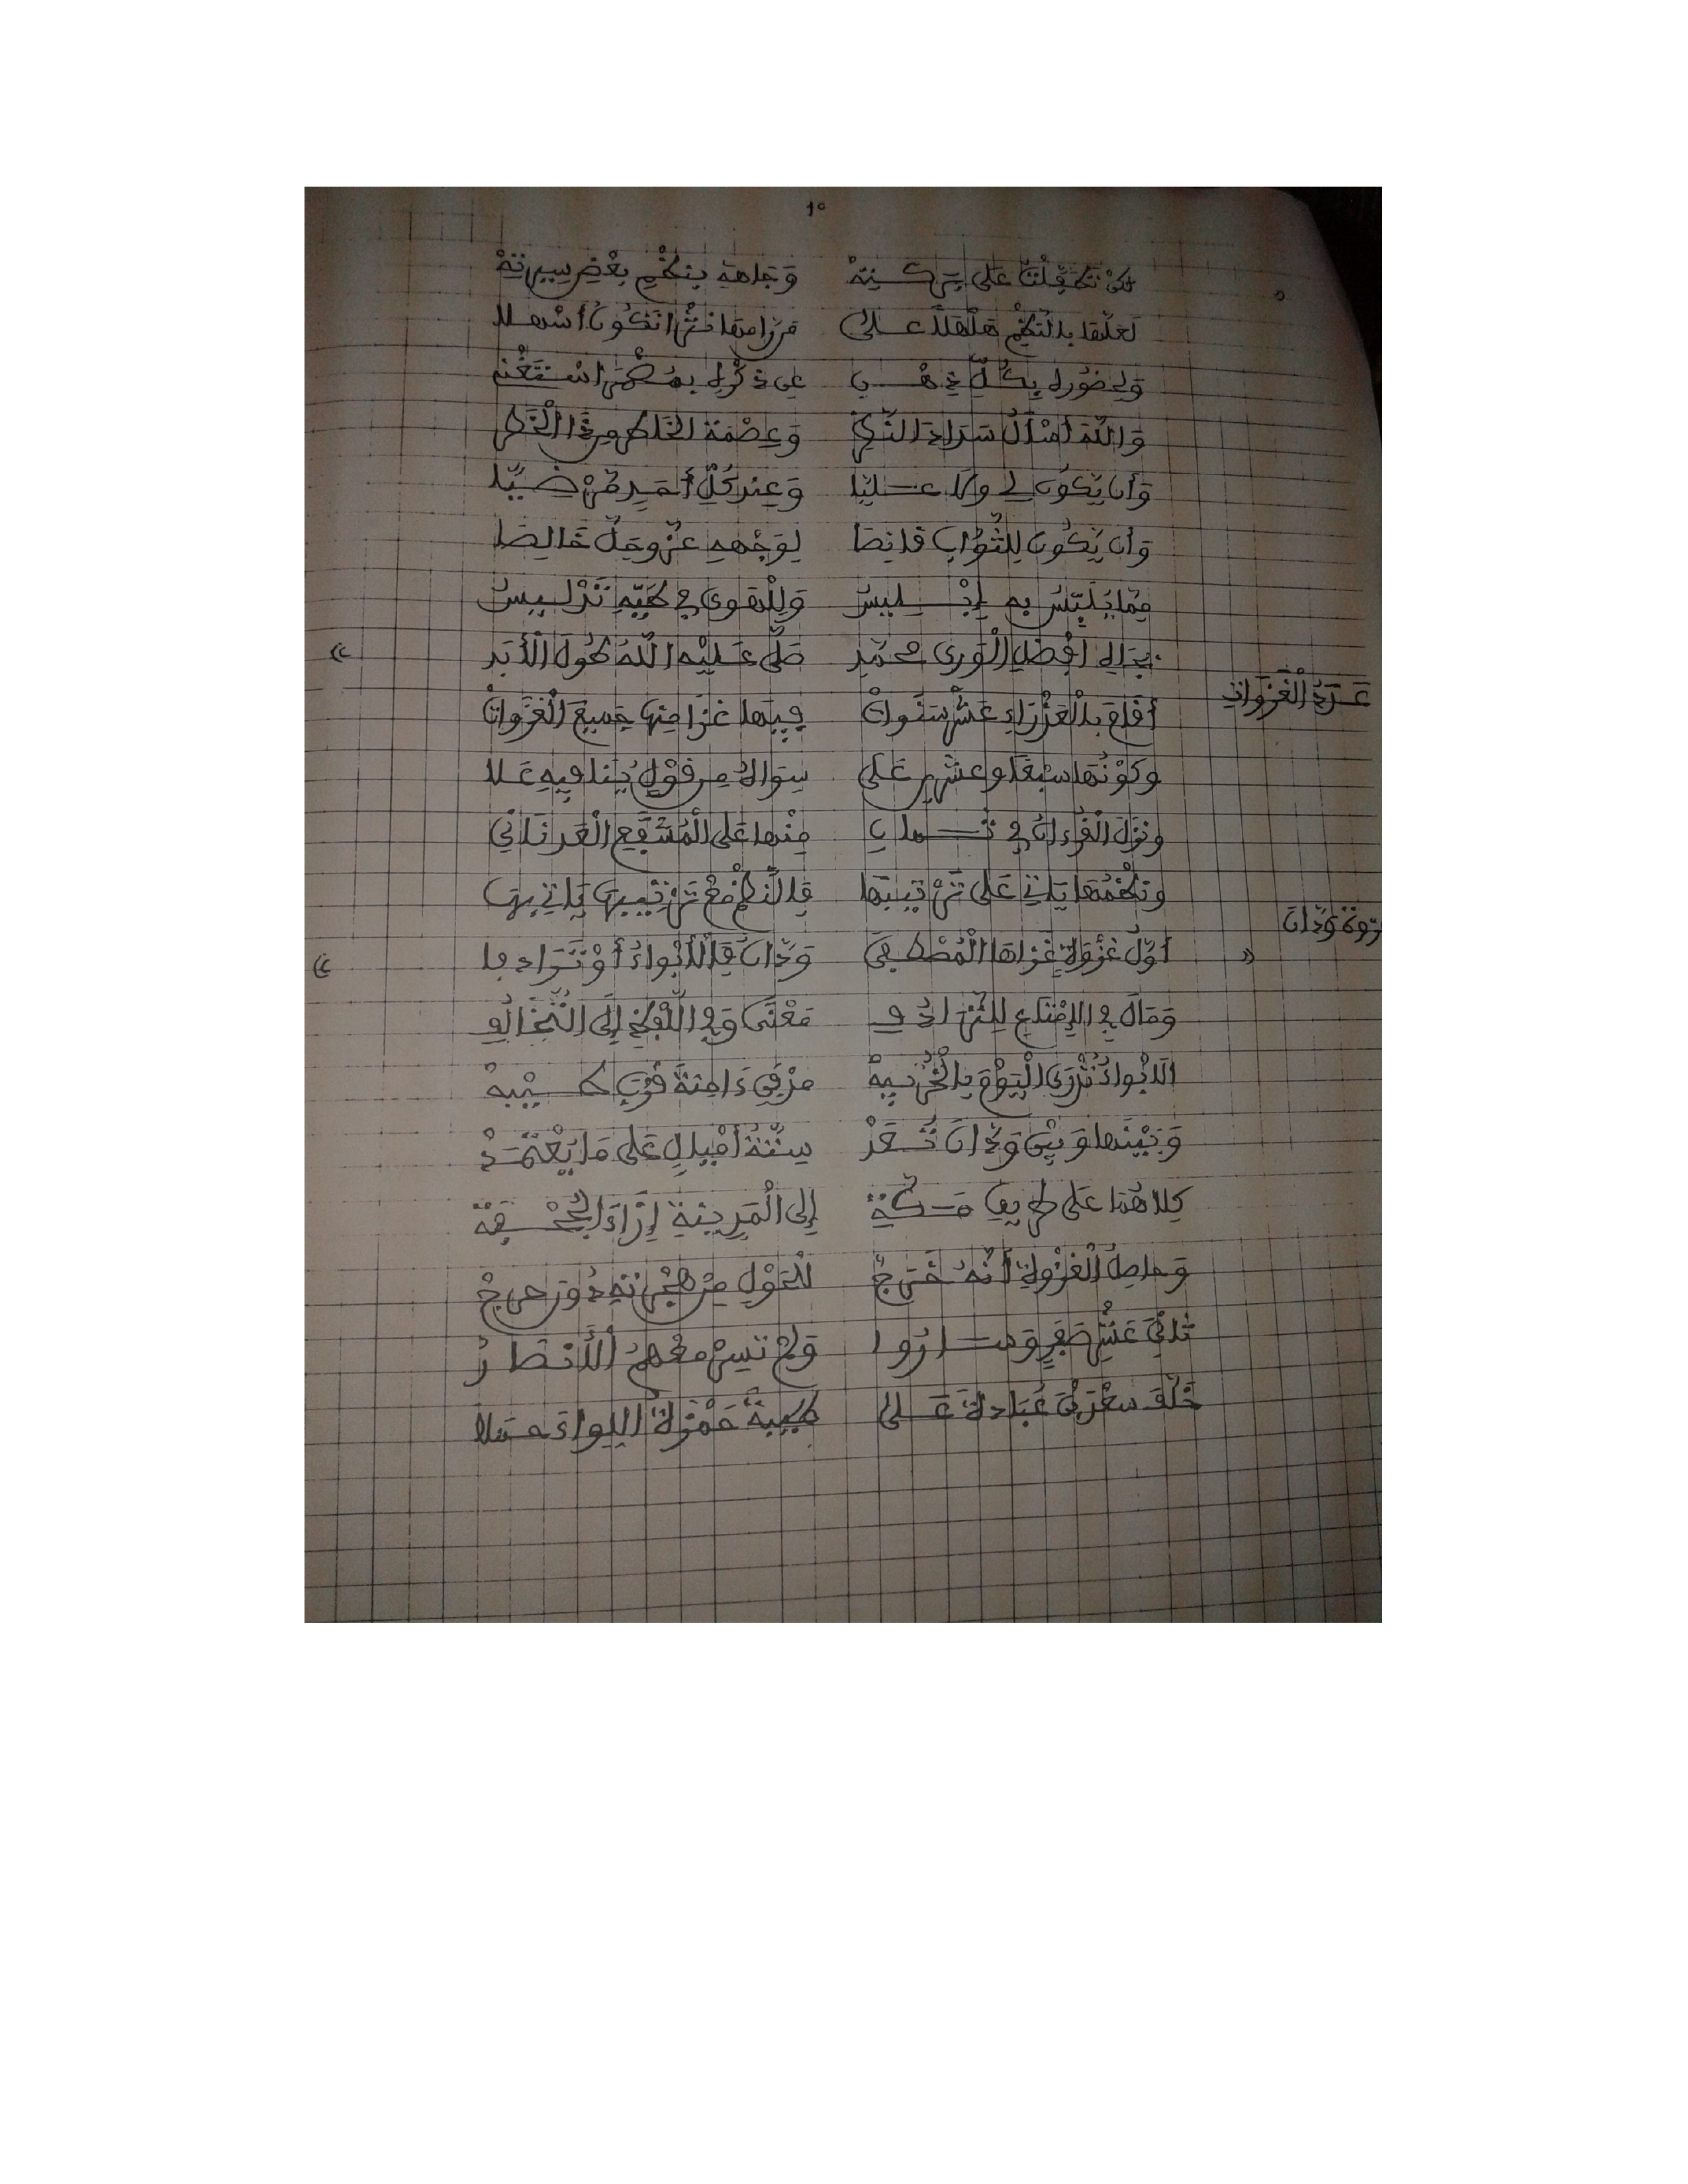 10
لكن تطفلت على بركته وجاهه بنظم بعض سيرته
لعلها بالنظم هلهلا على من رامها نثرا تكون أسهلا
ولحضور له بكل ذهني عن ذكر له بمضمر استغن
والله أسأل سداد النظر وعصمة الخاطر من ذا الخطر
وأن يكون لي ولا عليا وعند كل أحمد مرضيا
وأن يكون للثواب قانصا لوجهه عز وجل خالصا
مما يلبس به إبليس وللهوى في طيه تدليس
بجاه أفضل الورى محمد صلى عليه الله طول الأبد
عدد الغزوات
أقام بالعذراء عشر سنوات فيها غزا منها جميع الغزوات
وكونها سبعا وعشرين على سواه من قول ينافيه علا
ونزل القرءان في ثمان منها على المشفع العدناني
ونظمها ياتي على ترتيبها فالنظم مع ترتيبها ياتي بها
غزوة ودان
أول غزوة غزاها المصطفى ودان فالأبواء أو ترادفا
ومال في الامتاع للترادف معنى وفي اللفظ إلى التخالف
الابواء تدعى اليوم بالخريبه مدفن ءامنة قرب طيبه
وبينها وبين ودان تعد ستة أميال على ما يعتمد
كلاهما على طريق مكة إلى المدينة إزاء الجحفة
وحاصل الغزوة أنه خرج للحول من هجرته دون حرج
ثاني عشر صفر وساروا ولم تسر معهم الأنصار
خلف سعد بن عبادة على طيبة حمزة اللواء حملا